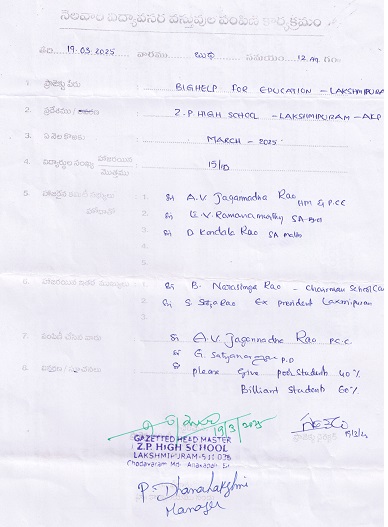 నెలవారీ విద్యావసర వస్తువుల పంపిణీ కార్యక్రమం
తేది. 19.03.2025 వారము బుధ సమయం 12 గం.
1. ప్రాజెక్టు పేరు BIGHELP FOR EDUCATION - LAKSHMIPURA
2. ప్రదేశము Z.P HIGH SCHOOL - LAKSHMIPURAM - AKP
3. ఏ నెల కొరకు MARCH - 2025
4. విద్యార్థుల సంఖ్య హాజరయినది 15/10
మొత్తము
5. 1. Sri A.V. Jagannadha Rao HM & P.CC
2. Sri K.V. Ramanamurthy SA-B.S
3. Sri D Kondala Rao SA Maths
4.
5.
6. 1. Sri B. Narasinga Rao - Chairman School
2. Sri S. Satya Rao Ex president Laxmipuram
3.
7. Sri A.V. Jagannadha Rao P.C.C.
Sri G. Satyanarayana P.O
8. please Give poor Students 40%
Billiant Students 60%
19/3/2025
GAZETTED HEAD MASTER
Z.P. HIGH SCHOOL
LAKSHMIPURAM-531 036
Chodavaram Md. Anakapalli
P. Dhanalakshmi
Manager